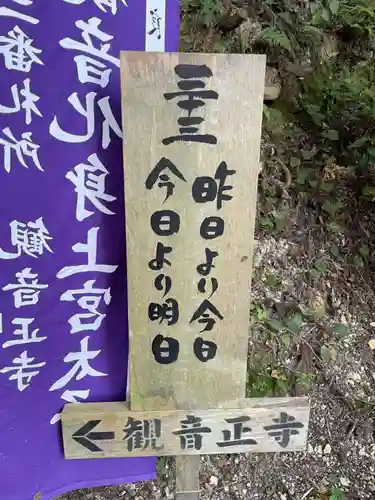 三十三
昨日より今日
今日より明日
観音正寺
観音化身上宮太
番札所 観音正寺